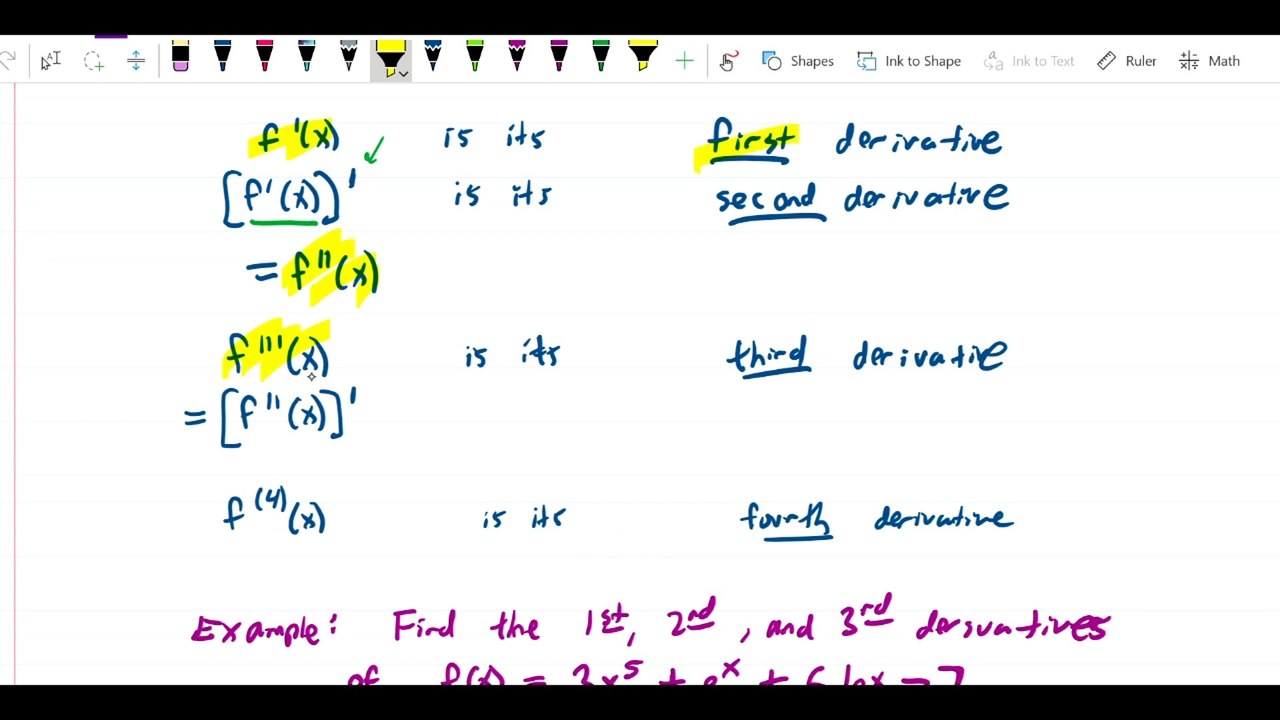 Shapes Ink to Shape Ink to Text Ruler Math
f'(x) is its first derivative
[f'(x)]' is its second derivative
= f''(x)
f'''(x) is its third derivative
= [f''(x)]'
f^(4)(x) is its fourth derivative
Example: Find the 1st, 2nd, and 3rd derivatives
of f(x) = 3x^5 + e^x + 6 lnx - 7